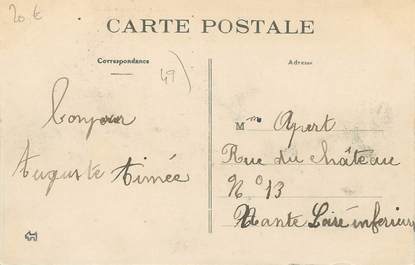 20 €
CARTE POSTALE
Correspondance
Adresse
49)
Bonjour
Auguste Aimée
Mme Apert
Rue du château
No 13
Nante Loire inferieur